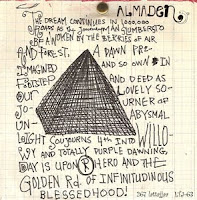 ALMADEN
THE DREAM CONTINUES IN 1,000,000
ROADS AS THE JOURNEYMAN SLUMBERS TO
BE A WOMEN BY THE BERRIES OF AIR
AND FOREST, A DAWN PRE-
IMAGINED AND SO OWN IN
FOOTSTEP AND DEED AS
OUR LOVELY SO-
URNER OF
UN- ABYSMAL
LIGHT SOJOURNS 4TH INTO WILLO-
WY AND TOTALLY PURPLE DAWNING,
DAY IS UPON R HERO AND THE
GOLDEN Rd. OF INFINITUDINOUS
BLESSEDHOOD!
367